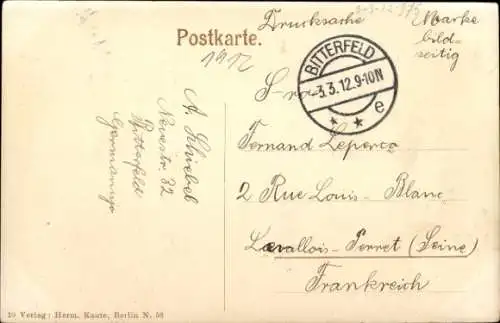 Drucksache
Marke
bild-
seitig
Postkarte.
1912
BITTERFELD
-3.3.12.9-10N
* * e
A. Schiebel
Neuestr. 32
Bitterfeld
Germany
Fernand Leperco
2 Rue Louis-Blanc
Levallois-Perret (Seine)
Frankreich
20 Verlag: Herm. Kaute, Berlin N. 58